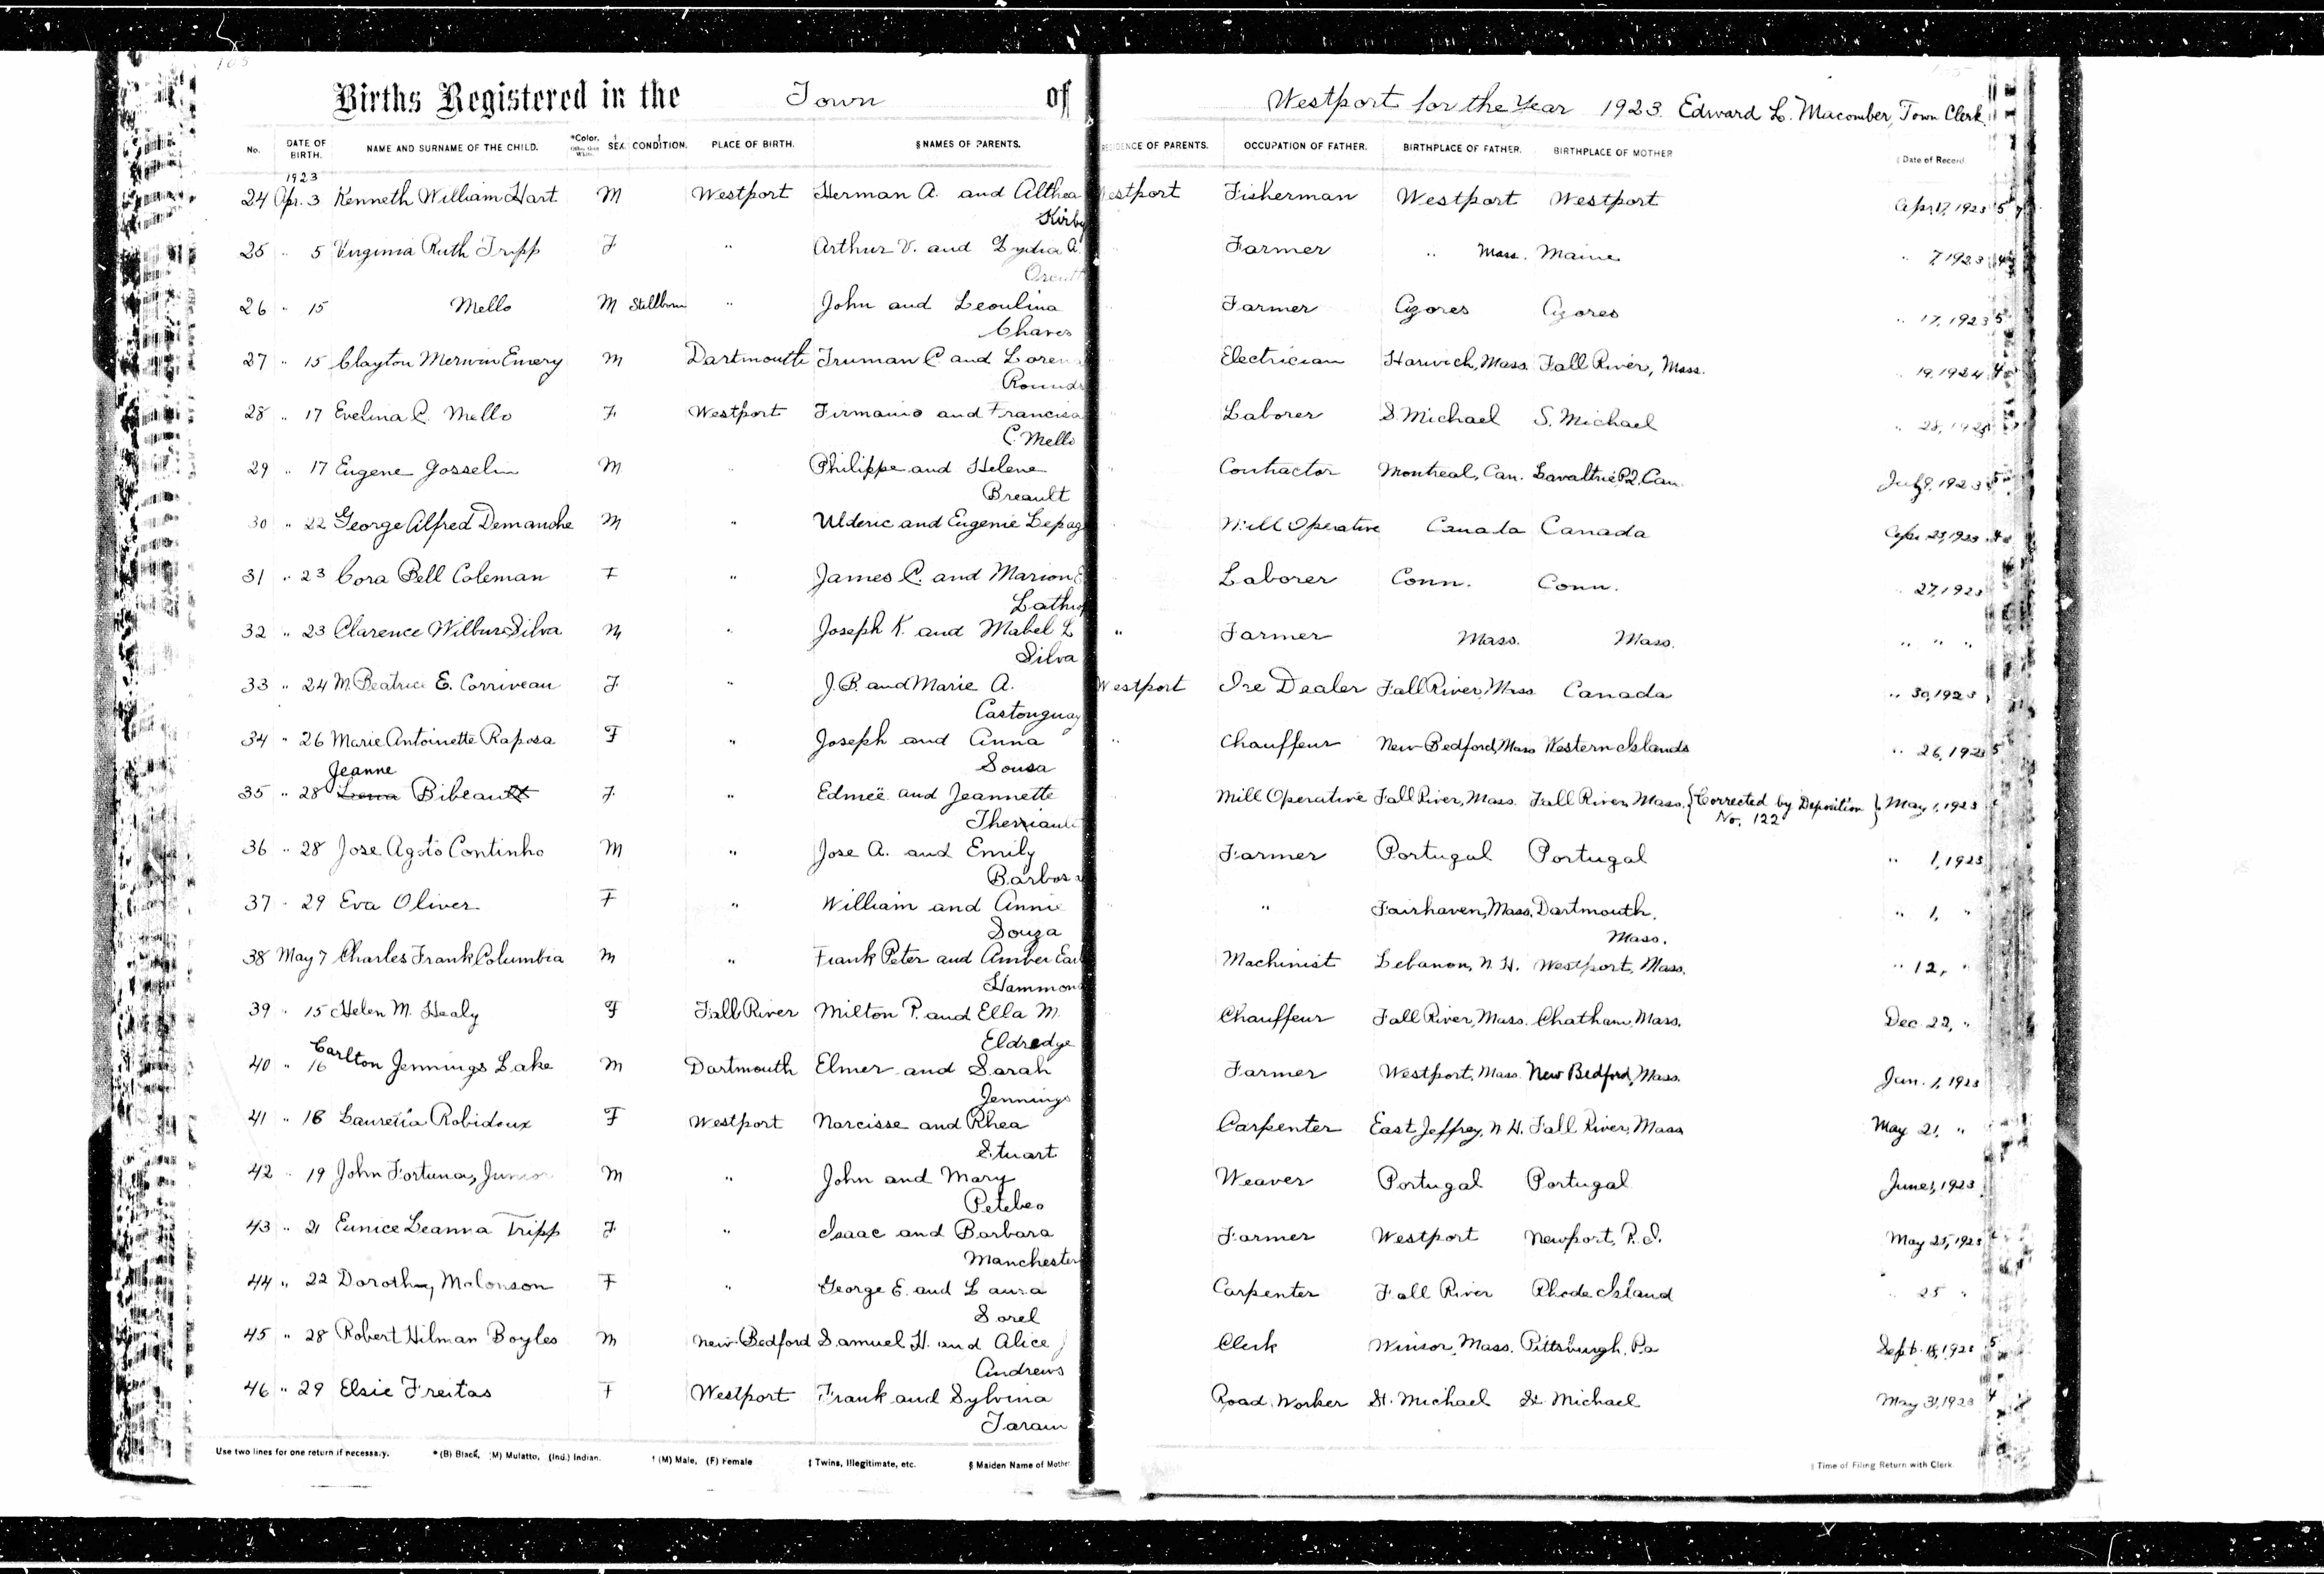 Births Registered in the Town of Westport for the Year 1923. Edward L. Macomber, Town Clerk.
No. DATE OF BIRTH. NAME AND SURNAME OF THE CHILD. *Color. Other than White. SEX CONDITION. PLACE OF BIRTH. § NAMES OF PARENTS. RESIDENCE OF PARENTS. OCCUPATION OF FATHER. BIRTHPLACE OF FATHER. BIRTHPLACE OF MOTHER Date of Record
1923
24 Apr. 3 Kenneth William Hart M Westport Herman A. and Althea Westport Fisherman Westport Westport Apr 17, 1923 5
Kirby
25 " 5 Virginia Ruth Tripp F " Arthur V. and Lydia A. Farmer " Mass. Maine " 7, 1923
Orcutt
26 " 15 Mello M Stillborn " John and Leoulina Farmer Azores Azores " 17, 1923 5
Chaves
27 " 15 Clayton Merwin Emery M Dartmouth Truman C and Loren Electrician Harwich, Mass. Fall River, Mass. " 19, 1924 4
Rounds
28 " 17 Evelina C. Mello F Westport Firmanio and Francisa Laborer S. Michael S. Michael " 28, 1923
C. Mello
29 " 17 Eugene Gosselin M " Philippe and Helene Contractor Montreal, Can. Lavaltrie P.Q. Can. July 9, 1923 5
Breault
30 " 22 George Alfred Demanche M " Ulderic and Eugenie Lepag Mill Operative Canada Canada Apr 23, 1923
31 " 23 Cora Bell Coleman F " James C. and Marion E Laborer Conn. Conn. 27, 1923
Lathrop
32 " 23 Clarence Wilbur Silva M " Joseph K. and Mabel L " Farmer Mass. Mass. " " "
Silva
33 " 24 M. Beatrice E. Corriveau F " J. B. and Marie A. Westport Ice Dealer Fall River, Mass. Canada " 30, 1923
Castonguay
34 " 26 Marie Antoinette Raposa F " Joseph and Anna " Chauffeur New Bedford, Mass Western Islands " 26, 1923 5
Sousa
Jeanne
35 " 28 Bibeault F " Edmeë and Jeannette Mill Operative Fall River, Mass. Fall River, Mass. {Corrected by Deposition} May 1, 1923
No. 122
Therriault
36 " 28 Jose Agsto Continho M " Jose A. and Emily Farmer Portugal Portugal " 1, 1923
Barbosa
37 " 29 Eva Oliver F " William and Annie " Fairhaven, Mass. Dartmouth, " 1, "
Mass.
Souza
38 May 7 Charles Frank Columbia M " Frank Peter and Amber Earl Machinist Lebanon, N. H. Westport, Mass. " 12, "
Hammond
39 " 15 Helen M. Healy F Fall River Milton P. and Ella M. Chauffeur Fall River, Mass. Chatham, Mass. Dec. 22, "
Eldredge
40 " 16 Carlton Jennings Lake M Dartmouth Elmer and Sarah Farmer Westport, Mass. New Bedford, Mass. Jan. 1, 1923
Jennings
41 " 18 Lauretta Robidoux F Westport Narcisse and Rhea Carpenter East Jeffrey, N. H. Fall River, Mass May 21, "
Stuart
42 " 19 John Fortuna, Junior M " John and Mary Weaver Portugal Portugal June 1, 1923
Petebeo
43 " 21 Eunice Leanna Tripp F " Isaac and Barbara Farmer Westport Newport, R. I. May 25, 1923
Manchester
44 " 22 Dorothy Malonson F " George E. and Laura Carpenter Fall River Rhode Island " 25 "
Sorel
45 " 28 Robert Hilman Boyles M New Bedford Samuel H. and Alice J Clerk Winsor, Mass. Pittsburgh, Pa Sept. 18, 1923 5
Andrews
46 " 29 Elsie Freitas F Westport Frank and Sylvina Road Worker St. Michael St. Michael May 31, 1923 4
Taram
Use two lines for one return if necessary. * (B) Black, (M) Mulatto, (Ind.) Indian. † (M) Male, (F) Female ‡ Twins, Illegitimate, etc. § Maiden Name of Mother Time of Filing Return with Clerk.